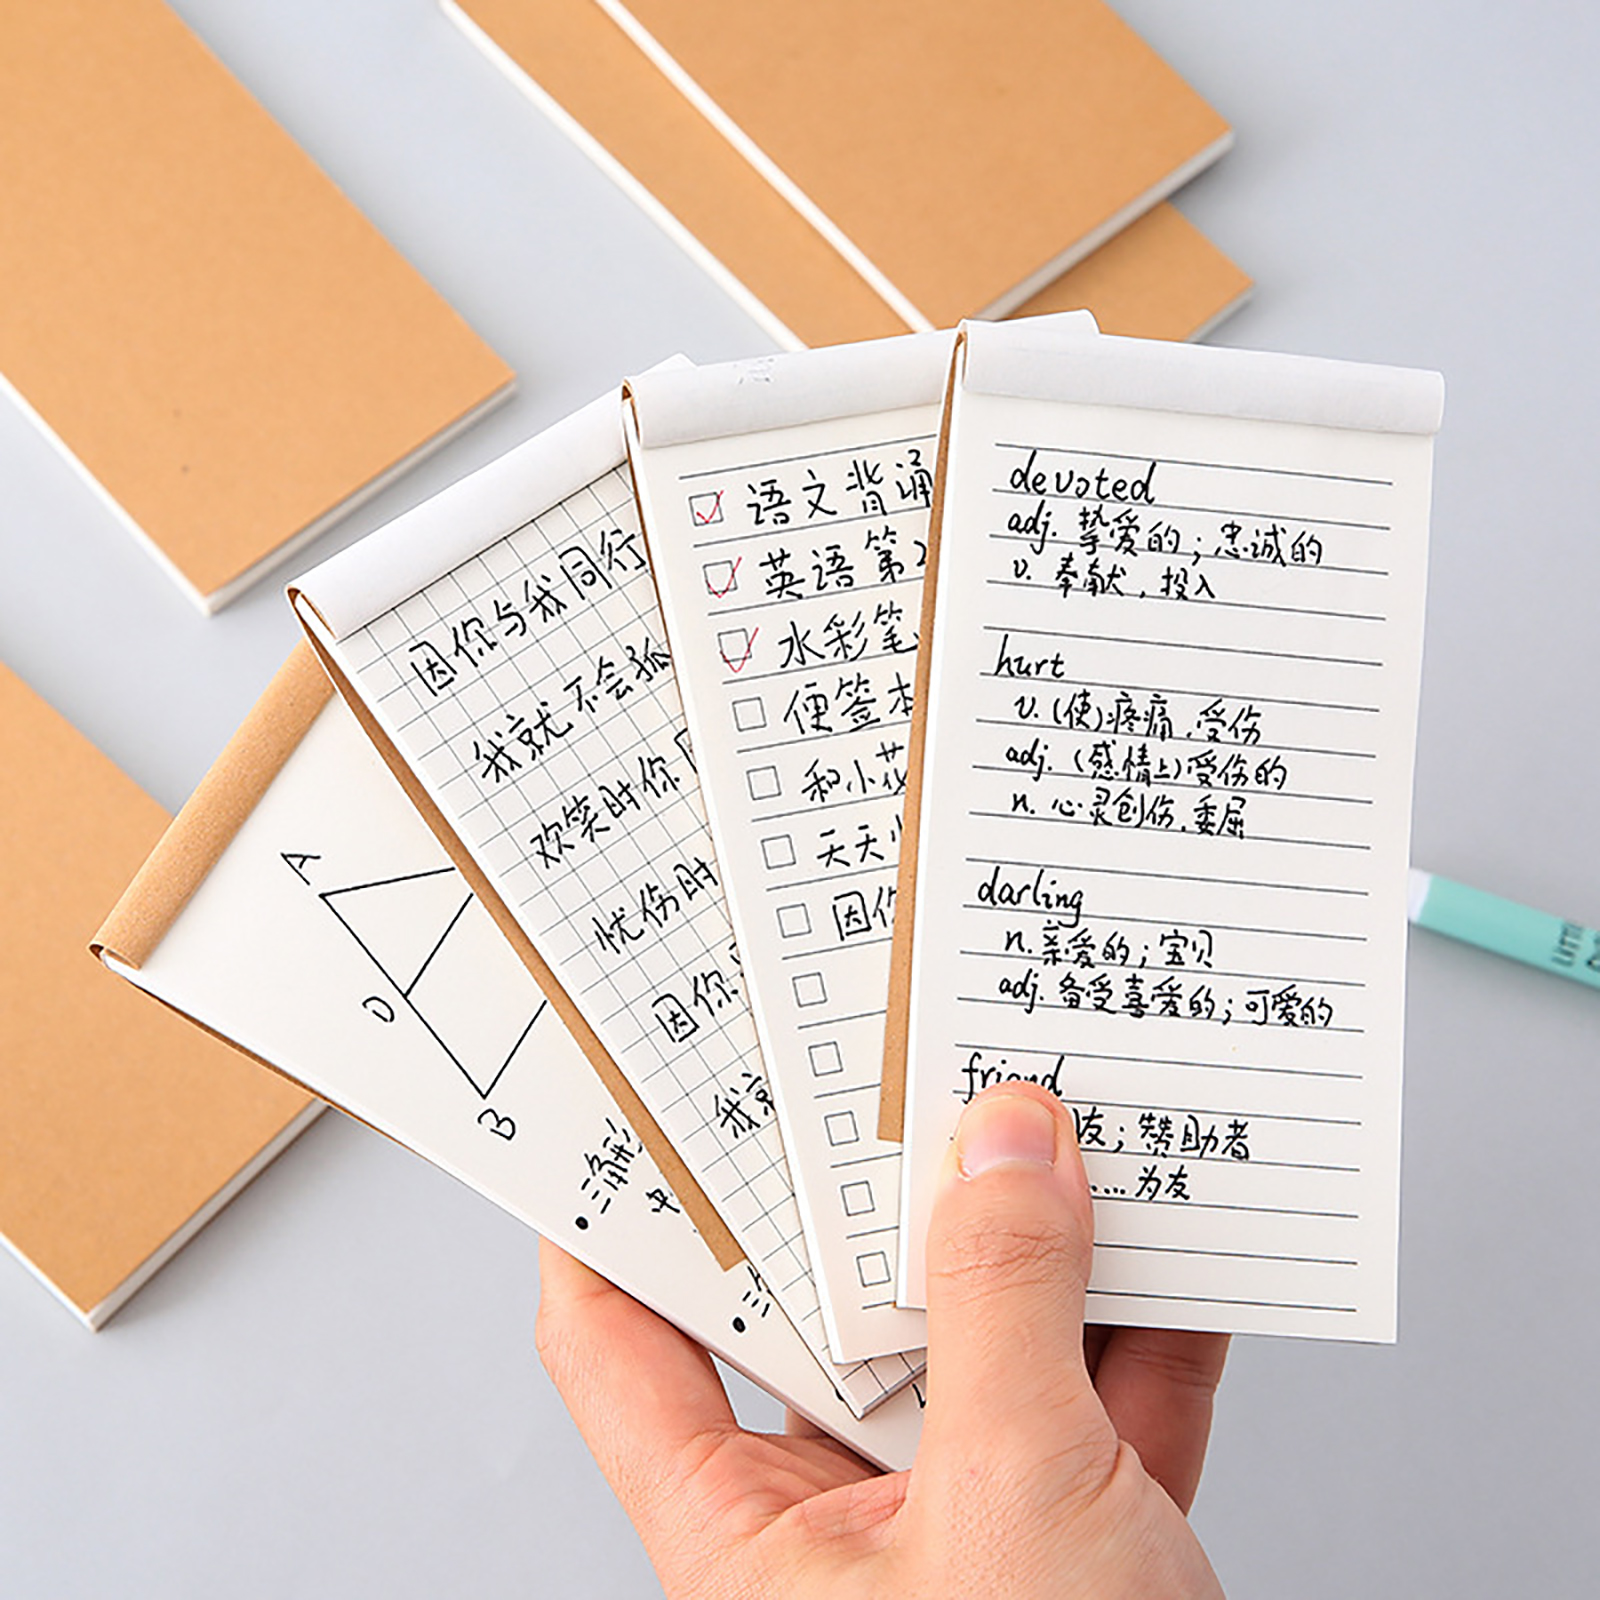 A
D
B
三角形
中
因你与我同行
我就不会孤
欢笑时你
忧伤时
因你
我就
语文背诵
英语第2
水彩笔
便签本
和小花
天天
因你
devoted
adj. 挚爱的；忠诚的
v. 奉献，投入
hurt
v. (使)疼痛，受伤
adj. (感情上)受伤的
n. 心灵创伤，委屈
darling
n. 亲爱的；宝贝
adj. 备受喜爱的；可爱的
friend
友；赞助者
……为友